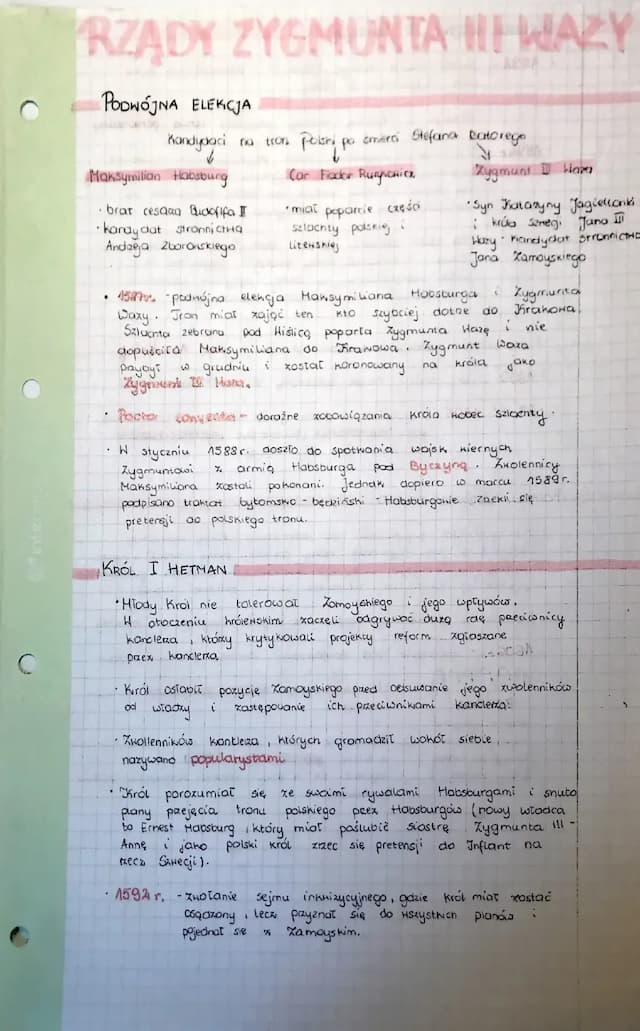 RZĄDY ZYGMUNTA III WAZY
PODWÓJNA ELEKCJA
Kandydaci na tron Polski po śmierci Stefana Batorego
Maksymilian Habsburg
Car Fiodor Rurykowicz
Zygmunt III Waza
· brat cesarza Rudolfa II
· kandydat stronnictwa
Andrzeja Zborowskiego
· miał poparcie części
szlachty polskiej i
litewskiej
· syn Katarzyny Jagiellonki
i króla Szwecji Jana III
Wazy · kandydat stronnictwa
Jana Zamoyskiego
• 1587r. - podwójna elekcja Maksymiliana Habsburga i Zygmunta
Wazy. Tron miał zająć ten kto szybciej dotrze do Krakowa.
Szlachta zebrana pod Wiślicą poparła Zygmunta Wazę i nie
dopuściła Maksymiliana do Krakowa. Zygmunt Waza
przybył w grudniu i został koronowany na króla jako
Zygmunt III Waza.
· Pacta conventa - doraźne zobowiązania króla wobec szlachty.
· W styczniu 1588r. doszło do spotkania wojsk wiernych
Zygmuntowi z armią Habsburga pod Byczyną. Zwolennicy
Maksymiliana zostali pokonani. Jednak dopiero w marcu 1589r.
podpisano traktat bytomsko - będziński - Habsburgowie zrzekli się
pretensji do polskiego tronu.
KRÓL I HETMAN
· Młody król nie tolerował Zamoyskiego i jego wpływów.
W otoczeniu królewskim zaczęli odgrywać dużą rolę przeciwnicy
kanclerza, którzy krytykowali projekty reform zgłaszane
przez kanclerza
· Król osłabił pozycję Zamoyskiego przed odsuwanie jego zwolenników
od władzy i zastępowanie ich przeciwnikami kanclerza.
· Zwollenników kanclerza, których gromadził wokół siebie,
nazywano popularystami
· Król porozumiał się ze swoimi rywalami Habsburgami i snuto
plany przejęcia tronu polskiego przez Habsburgów (nowy władca
to Ernest Habsburg, który miał poślubić siostrę Zygmunta III -
Annę i jako polski król zrzec się pretensji do Inflant na
rzecz Szwecji).
· 1592 r. - zwołanie sejmu inkwizycyjnego, gdzie król miał zostać
osądzony, lecz przyznał się do wszystkich planów i
pojednał się z Zamoyskim.